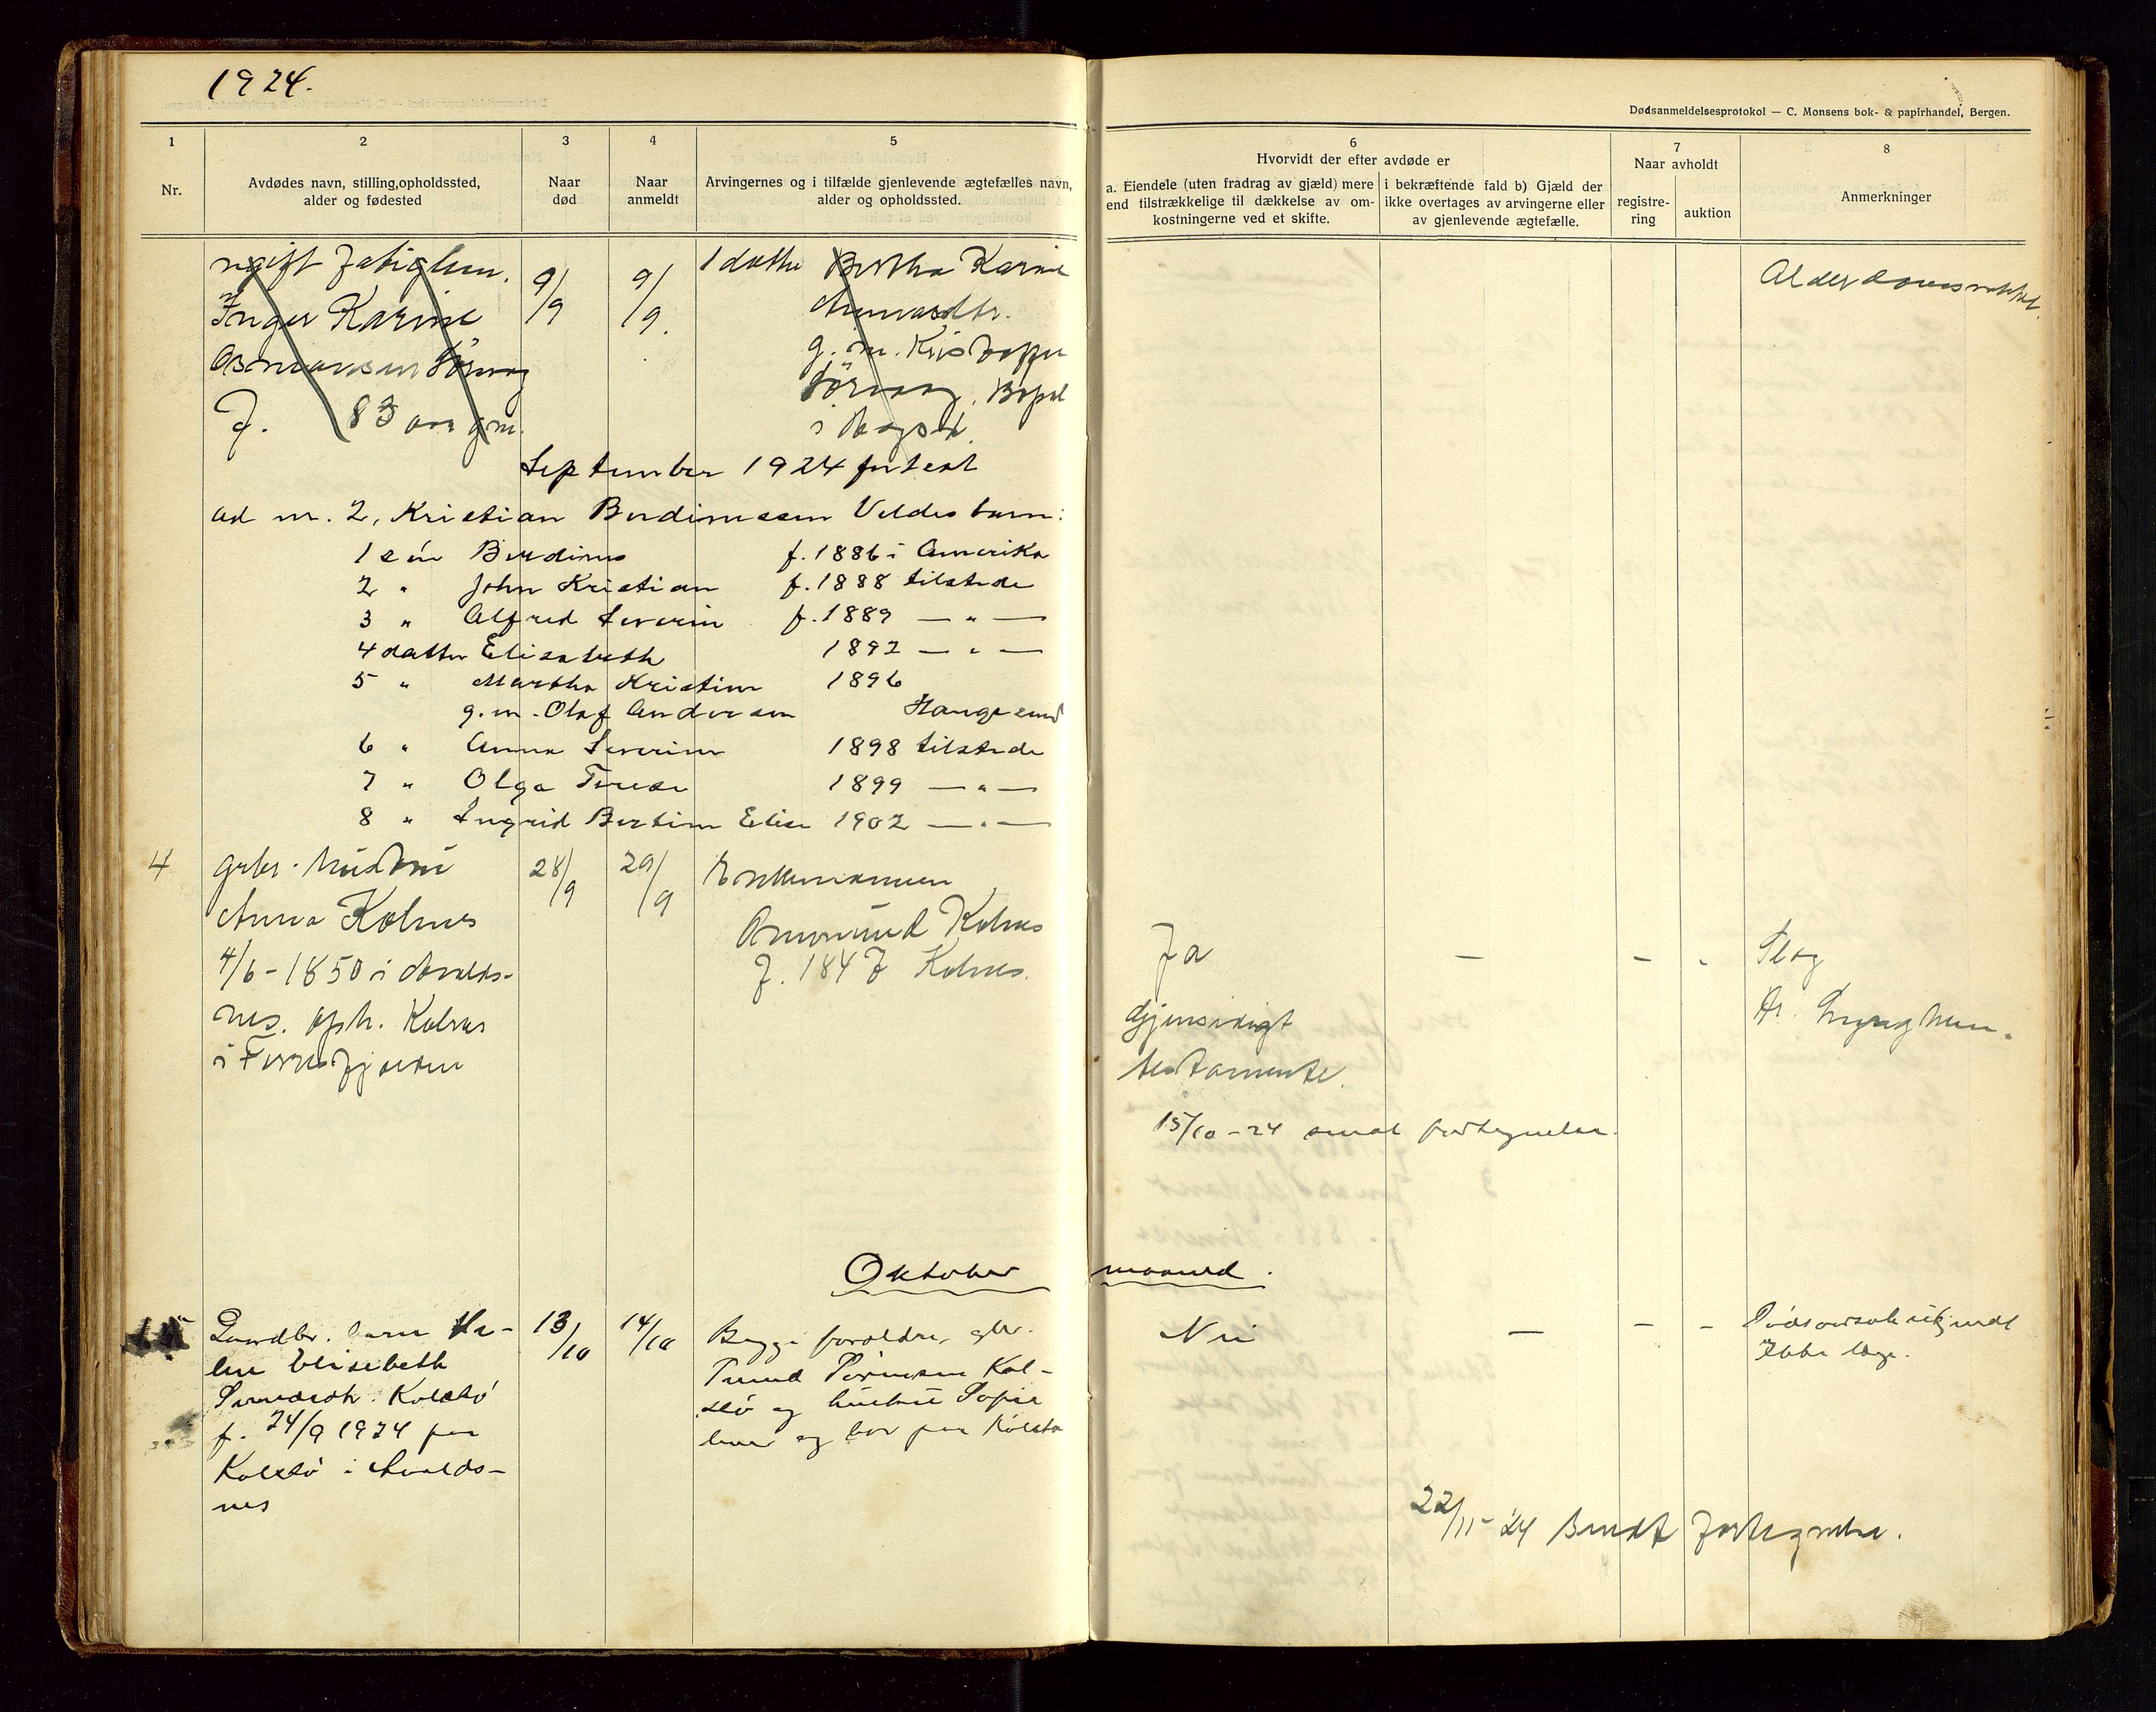 1924.
Dødsanmeldelsesprotokol — C. Monsens bok- & papirhandel, Bergen.
1
2
3
4
5
6
7
8
Nr.
Avdødes navn, stilling, opholdssted,
alder og fødested
Naar
død
Naar
anmeldt
Arvingernes og i tilfælde gjenlevende ægtefælles navn,
alder og opholdssted.
Hvorvidt der efter avdøde er
a. Eiendele (uten fradrag av gjæld) mere
end tilstrækkelige til dækkelse av om-
kostningerne ved et skifte.
i bekræftende fald b) Gjæld der
ikke overtages av arvingerne eller
av gjenlevende ægtefælle.
Naar avholdt
registre-
ring
auktion
Anmerkninger
ugift fatiglem.
Inger Karine
Asmundsen Sørvaag
83 aar gm.
9/9
9/9.
1 datter Bertha Karine
g. m. Kristoffer
Sørvaag, Bopel
Alderdomssvakhet.
September 1924 fortsat
ad nr. 2, Kristian Berdinessen Veldes barn:
1 sön Berdines f. 1886 i Amerika
2 " John Kristian f. 1888 tilstede
3 " Alfred Severin f. 1889 — " —
4 datter Elisabeth 1892 — " —
5 " Martha Kristine 1896
g. m. Olaf Andersen Haugesund
6 " Anna Severine 1898 tilstede
7 " Olga Terese 1899 — " —
8 " Ingrid Bertine Elise 1902 — " —
4
grbr. hustru
Anna Kolnes
4/6 - 1850 i Avalds-
nes. oph. Kolnes
i Førresfjorden
28/9
29/9
Enkemannen
Asmund Kolnes
f. 1847 Kolnes.
Ja
gjensidigt
testamente.
—
—
-
Slag
15/10 - 24 sendt fortegnelse.
Oktober maaned.
Gaardbr. barn Ha-
line Elisebeth
Kolstö
f. 24/9 1924 paa
Kolstö i Avalds-
nes
13/10
14/10
Begge foreldre, gbr.
Tormesen Kol-
stö og hustru Sofie
lever og bor paa Kolstö
Nei
—
—
-
Dödsaarsak ukjendt
Ikke læge.
22/11 - 24 Sendt fortegnelse.